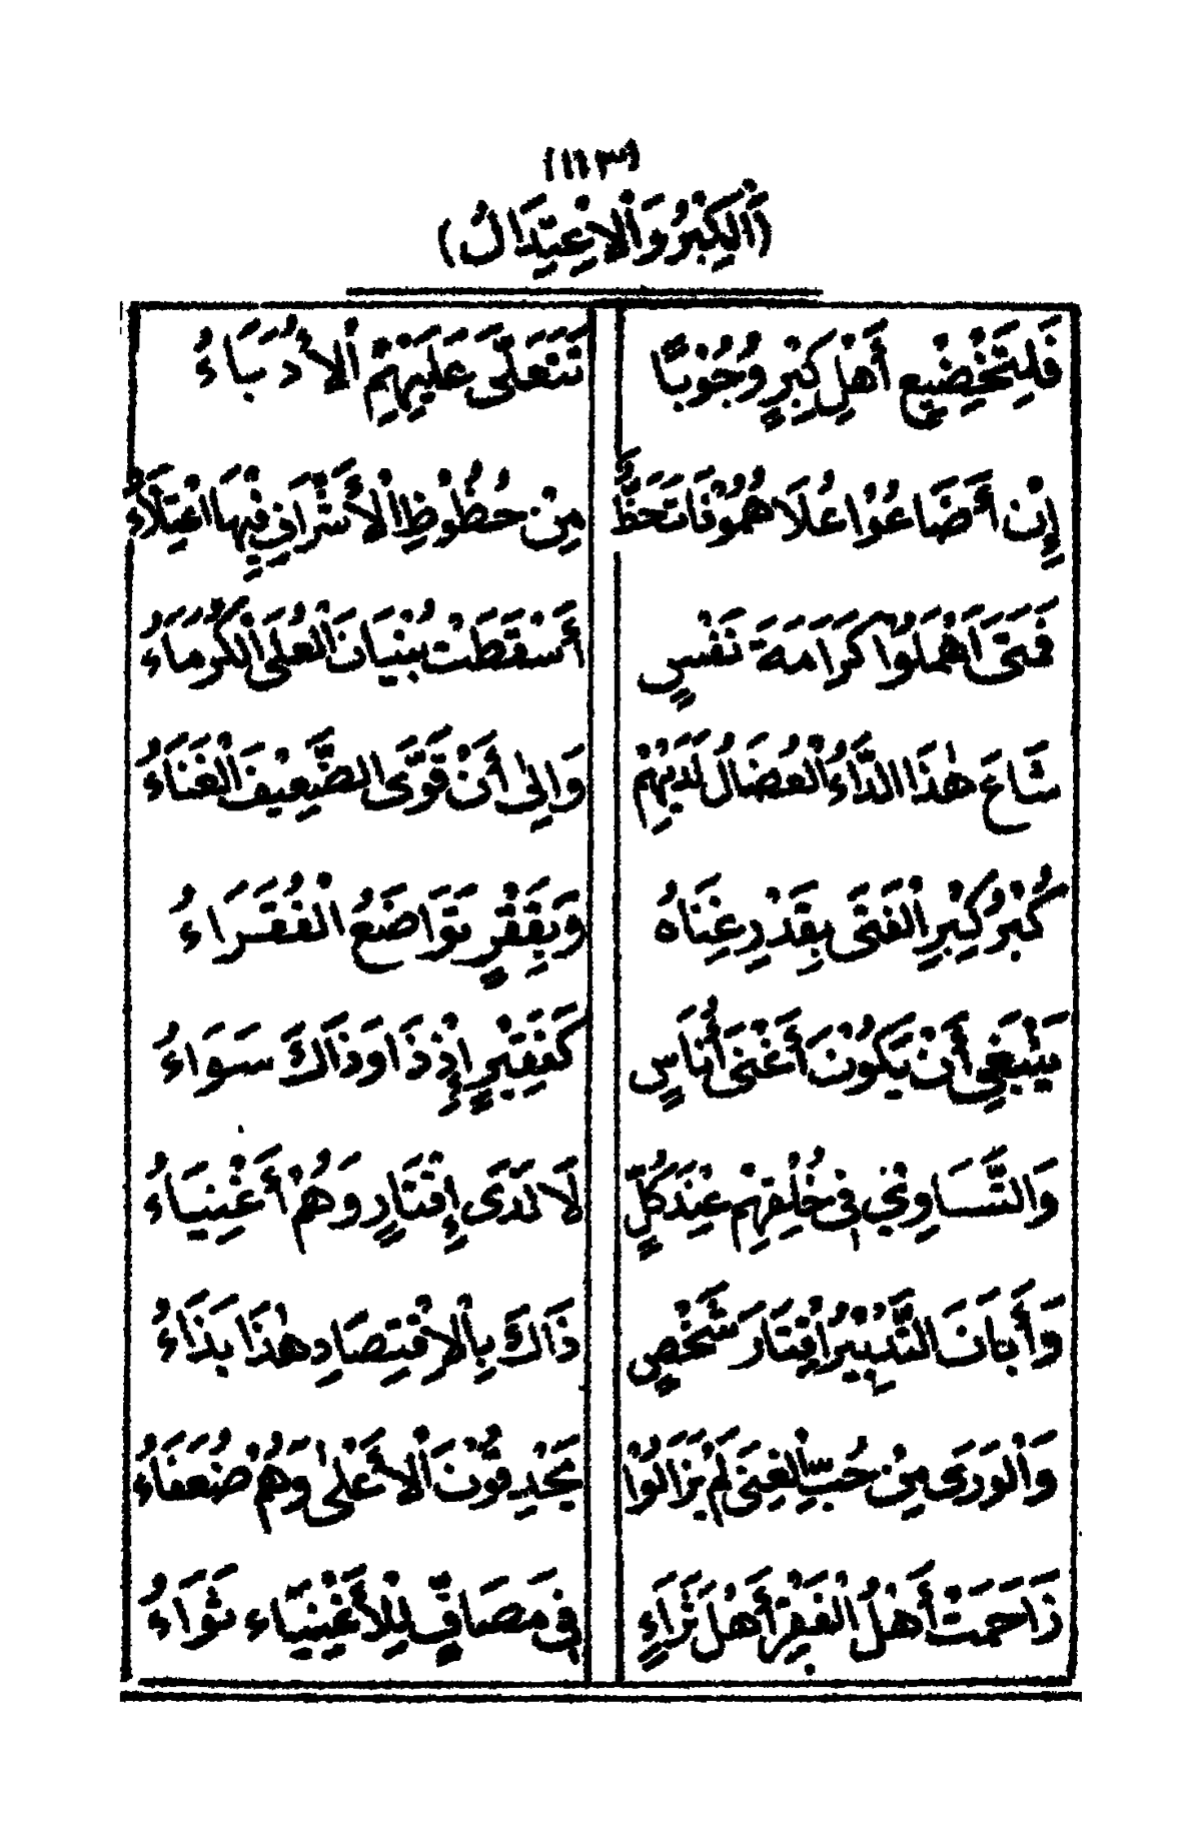 (١١٣)
(اَلْكِبْرُ وَالْاِعْتِدَالُ)
فَلِتَخْضِيعِ أَهْلِ كِبْرٍ وُجُوْبًا تَتَعَلَّى عَلَيْهِمُ الْأُدَبَاءُ
إِنْ أَضَاعُوْا عُلَا هُمُوْ فَاتَ حَظٌّ مِنْ حُظُوْظِ الْأَشْرَافِ فِيْهَا اعْتِلَاءُ
فَمَتَى اَهْمَلُوْا كَرَامَةَ نَفْسٍ أَسْقَطَتْ بُنْيَانَ الْعُلَى الْكُرَمَاءُ
شَاعَ هٰذَا الدَّاءُ الْعُضَالُ لَدَيْهِمْ وَإِلٰى أَنْ قَوَّى الضَّعِيْفَ الْغَنَاءُ
كُبْرُ كِبْرِ الْفَتَى بِقَدْرِ غِنَاهُ وَبِفَقْرٍ تَوَاضَعُ الْفُقَرَاءُ
يَنْبَغِي أَنْ يَكُوْنَ أَغْنَى أُنَاسٍ كَفَقِيْرٍ إِذْ ذَا وَذَاكَ سَوَاءُ
وَالتَّسَاوِيْ فِيْ خُلْقِهِمْ عِنْدَ كُلٍّ لَا لَدَى إِقْتَارٍ وَهُمْ أَغْنِيَاءُ
وَأَبَانَ التَّدْبِيْرُ اِقْتَارَ شَخْصٍ ذَاكَ بِالْاِقْتِصَادِ هٰذَا بَذَاءُ
وَالْوَرَى مِنْ حُبِّ الْغِنَى لَمْ يَزَالُوْا يَحْدِقُوْنَ الْأَعْلٰى وَهُمْ ضُعَفَاءُ
زَاحَمَتْ أَهْلُ الْفَقْرِ أَهْلَ ثَرَاءٍ فِي مَصَافٍّ لِلْأَغْنِيَاءِ ثَوَاءُ